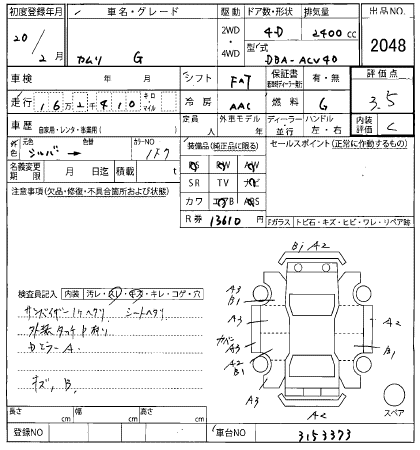 初度登録年月 車名・グレード 駆動 ドア数・形状 排気量 出品NO.
20/2月 カムリ G 2WD・4WD 4-D 2400cc 2048
型式 DBA-ACV40
車検 年 月 シフト FAT 保証書 有・無 評価点 3.5
走行 16万2千410 キロ・マイル 冷房 AAC 燃料 G
車歴 自家用・レンタ・事業用( ) 定員 人 外車モデル 年 ディーラー・並行 ハンドル 左・右 内装評価 C
外色 元色 シルバー 色替 カラーNO 1F7
装備品(純正品に限る) セールスポイント(正常に作動するもの)
名義変更期限 月 日迄 積載 t
PS PW AW
SR TV ナビ
カワ エアB ABS
注意事項(欠品・修復・不具合箇所および状態)
R券 13610円
Fガラス トビ石・キズ・ヒビ・ワレ・リペア跡
検査員記入 内装 汚レ・スレ・キズ・キレ・コゲ・穴
サンバイザー ヘタリ シートヘタリ
外装タッチ
ミラーA
キズ, B,
Bi A2
A3
B1
A3
カバン
A3
A2
B1
A3
A2
B1
A2
スペア
長さ cm 幅 cm 高さ cm
登録NO 車台NO 3153373